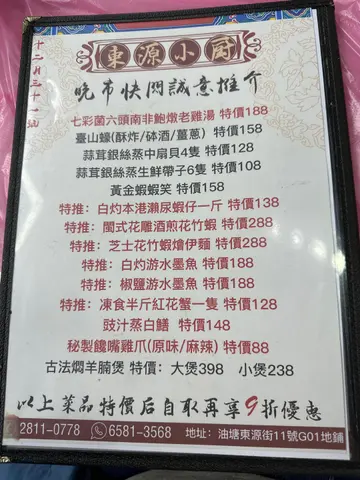 十二月三十一號
東源小厨
晚市快閃誠意推介
七彩菌六頭南非鮑燉老雞湯 特價188
臺山蠔(酥炸/砵酒/薑蔥) 特價158
蒜茸銀絲蒸中扇貝4隻 特價128
蒜茸銀絲蒸生鮮帶子6隻 特價108
黃金蝦蝦笑 特價158
特推：白灼本港瀨尿蝦仔一斤 特價138
特推：閩式花雕酒煎花竹蝦 特價288
特推：芝士花竹蝦燴伊麵 特價288
特推：白灼游水墨魚 特價188
特推：椒鹽游水墨魚 特價188
特推：凍食半斤紅花蟹一隻 特價128
豉汁蒸白鱔 特價148
秘製饞嘴雞爪(原味/麻辣) 特價88
古法燜羊腩煲 特價：大煲398 小煲238
以上菜品特價后自取再享9折優惠
2811-0778 6581-3568 地址：油塘東源街11號G01地鋪